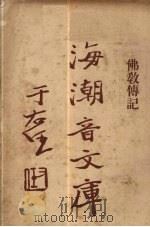 佛教傳記
海潮音文庫
于右任